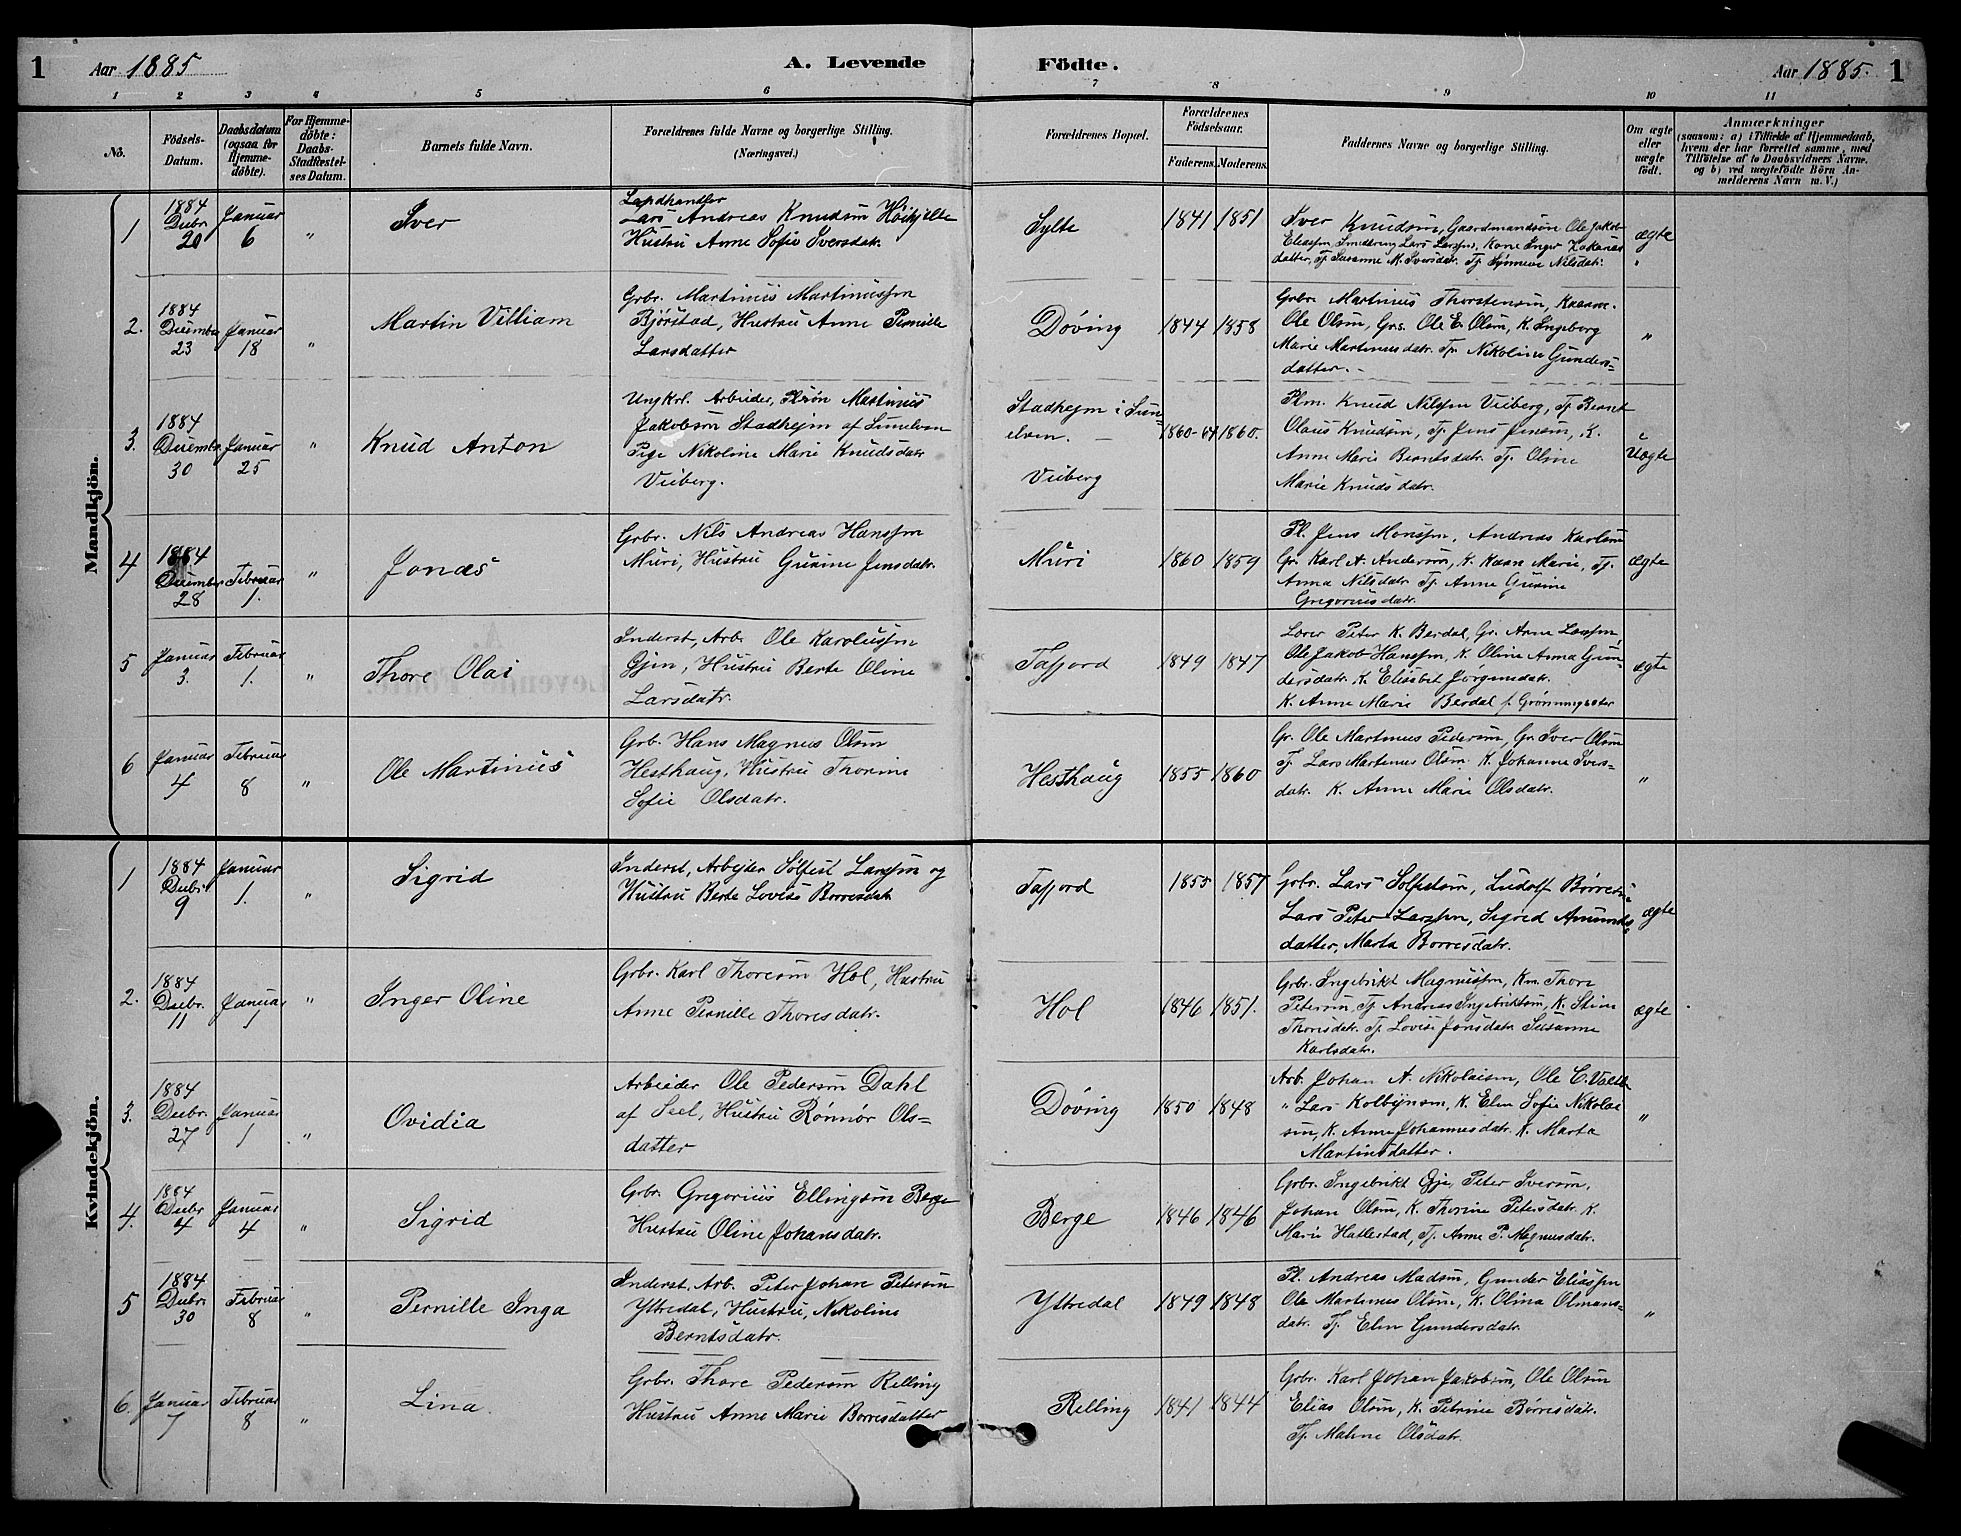 1 Aar 1885 A. Levende Födte. Aar 1885. 1
1 2 3 4 5 6 7 8 9 10 11
No.
Födsels-
Datum.
Daabsdatum
(ogsaa for
Hjemme-
döbte).
For Hjemme-
döbte:
Daabs-
Stadfæstel-
ses Datum.
Barnets fulde Navn.
Forældrenes fulde Navne og borgerlige Stilling.
(Næringsvei.)
Forældrenes Bopæl.
Forældrenes
Födselsaar.
Faderens. Moderens.
Faddernes Navne og borgerlige Stilling.
Om ægte
eller
uægte
födt.
Anmærkninger
(saasom: a) i Tilfælde af Hjemmedaab,
hvem der har forrettet samme, med
Tilföielse af to Daabsvidners Navne,
og b) ved uægtefödte Börn An-
melderens Navn m. V.)
Mandkjön.
1
1884
Decbr.
20
Januar
6
"
Iver
Landhandler
Lars Andreas Knudsen
Hustru Anne Sofie Iversdatr.
Sylte
1841 1851
Iver Knudsen, Gaardmandsøn Ole Jakob
Eliassen Lars Larsen, Kone Inger
datter, Tj. Susanne M. Iversdatr. Tj. Synneve Nilsdatr.
ægte
"
2.
1884
December
23
Januar
18
"
Martin Villiam
Grbr. Martinus Martinussen
Bjørstad, Hustru Anne Pernille
Larsdatter
Døving
1844 1858
Grbr. Martinus Thorstensen,
Ole Olsen, Grs. Ole E. Olsen, K. Ingeborg
Marie Martinusdatr. Tp. Nikoline Gunders-
datter.
"
3.
1884
Decembr
30
Januar
25
"
Knud Anton
Ungkrl. Arbeider, Plsøn Martinus
Jakobsen Stadhejm af Sunelven
Pige Nikoline Marie Knudsdatr
Viiberg.
Stadhejm i Sun
elven.
Viiberg
1860-61 1860.
Plm. Knud Nilssen Viiberg, Tj. Bernt
Olaus Knudsen, Tj. Jens Jensen, K.
Anne Marie Berntsdatr. Tj. Oline
Marie Knudsdatr.
Uægte
4
1884
December
28
Februar
1.
"
Jonas
Grbr. Nils Andreas Hanssen
Muri, Hustru Gurine Jensdatr.
Muri
1860 1859
Pl. Jens Monssen, Andreas Karlsen
Gr. Karl A. Andersen, K. Karen Marie, Tj.
Anna Nilsdatr. Tj. Anne Gurine
Gregoriusdatr.
ægte
5
Januar
3.
Februar
1.
"
Thore Olai
Inderst, Arb. Ole Karolussen
Gjen, Hustru Berte Oline
Larsdatr.
Tafjord
1849 1847
Lærer Peter K. Berdal, Gr. Arne Larssen,
Ole Jakob Hanssen, K. Oline Anna Gun
dersdatr. K. Elisabet Jørgensdatr.
K. Anne Marie Berdal f. Grønningsæter
ægte
6
Januar
4
Februar
8
"
Ole Martinus
Grb. Hans Magnus Olsen
Hesthaug, Hustru Thorine
Sofie Olsdatr.
Hesthaug
1855 1860
Gr. Ole Martinus Pedersen, Gr. Iver Olsen
Tj. Lars Martinus Olsen. K. Johanne Ivers-
datr. K. Anne Marie Olsdatr.
"
Kvindekjön.
1
1884
Decbr
9
Januar
1.
"
Sigrid
Inderst, Arbejder Sølfest Larssen og
Hustru Berte Lovise Borresdatr
Tafjord
1855 1857
Grbr. Lars Solfestsen, Ludolf Børresen
Lars Peter Larssen, Sigrid Amunds-
datter, Marta Borresdatr.
ægte
2.
1884
Decbr.
11
Januar
1
"
Inger Oline
Grbr. Karl Thoresen Hol, Hustru
Anne Pernille Thoresdatr.
Hol
1846 1851.
Grbr. Ingebrikt Magnussen, Km. Thore
Petersen, Tj. Andreas Ingebriktsen, K. Stine
Thoresdatr. Tj. Lovise Jonsdatr. Susanne
Karlsdatr.
ægte
3.
1884
Decbr.
27
Januar
1
"
Ovidia
Arbeider Ole Pedersen Dahl
af Seel, Hustru Rønnør Ols-
datter
Døving
1850 1848
Arb. Johan A. Nikolaisen, Ole C.
" Lars Kolbejnsen, K. Elen Sofie Nikolai
sen, K. Anne Johannesdatr. K. Marta
Martinsdatter.
"
4.
1884
Decbr
4
Januar
4
"
Sigrid
Grbr. Gregorius Ellingsen Berge
Hustru Oline Johansdatr.
Berge
1846 1846
Grbr. Ingebrikt Gje, Peter Iversen,
Johan Olsen, K. Thorine Petersdatr. K.
Marie Hatlestad, Tj. Anne P. Magnusdatr.
5
1884
Decbr
30
Februar
8
"
Pernille Inga
Inderst, Arb. Peter Johan Petersen
Yttredal, Hustru, Nikoline
Berntsdatr.
Yttredal
1849 1848
Pl. Andreas Madsen, Gunder Eliassen
Ole Martinus Olsen, K. Olina Olmans-
datr. Tj. Elen Gundersdatr.
"
6.
Januar
7
Februar
8
"
Lina.
Grbr. Thore Pedersen Relling
Hustru Anne Marie Borresdatter
Relling
1841 1844
Grbr. Karl Johan Jakobsen, Ole Olsen
Elias Olsen, K. Petrine Børresdatr.
Tj. Malene Olsdatr.